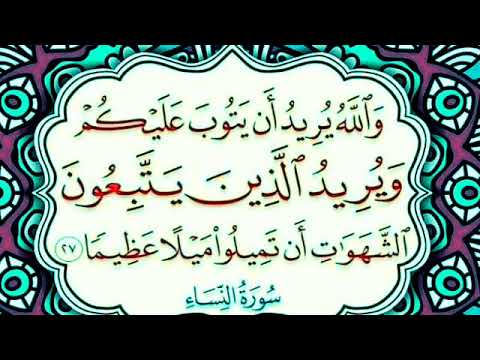 وَٱللَّهُ يُرِيدُ أَن يَتُوبَ عَلَيۡكُمۡ
وَيُرِيدُ ٱلَّذِينَ يَتَّبِعُونَ
ٱلشَّهَوَٰتِ أَن تَمِيلُواْ مَيۡلًا عَظِيمٗا ٢٧
سُورَةُ النِّسَاءِ